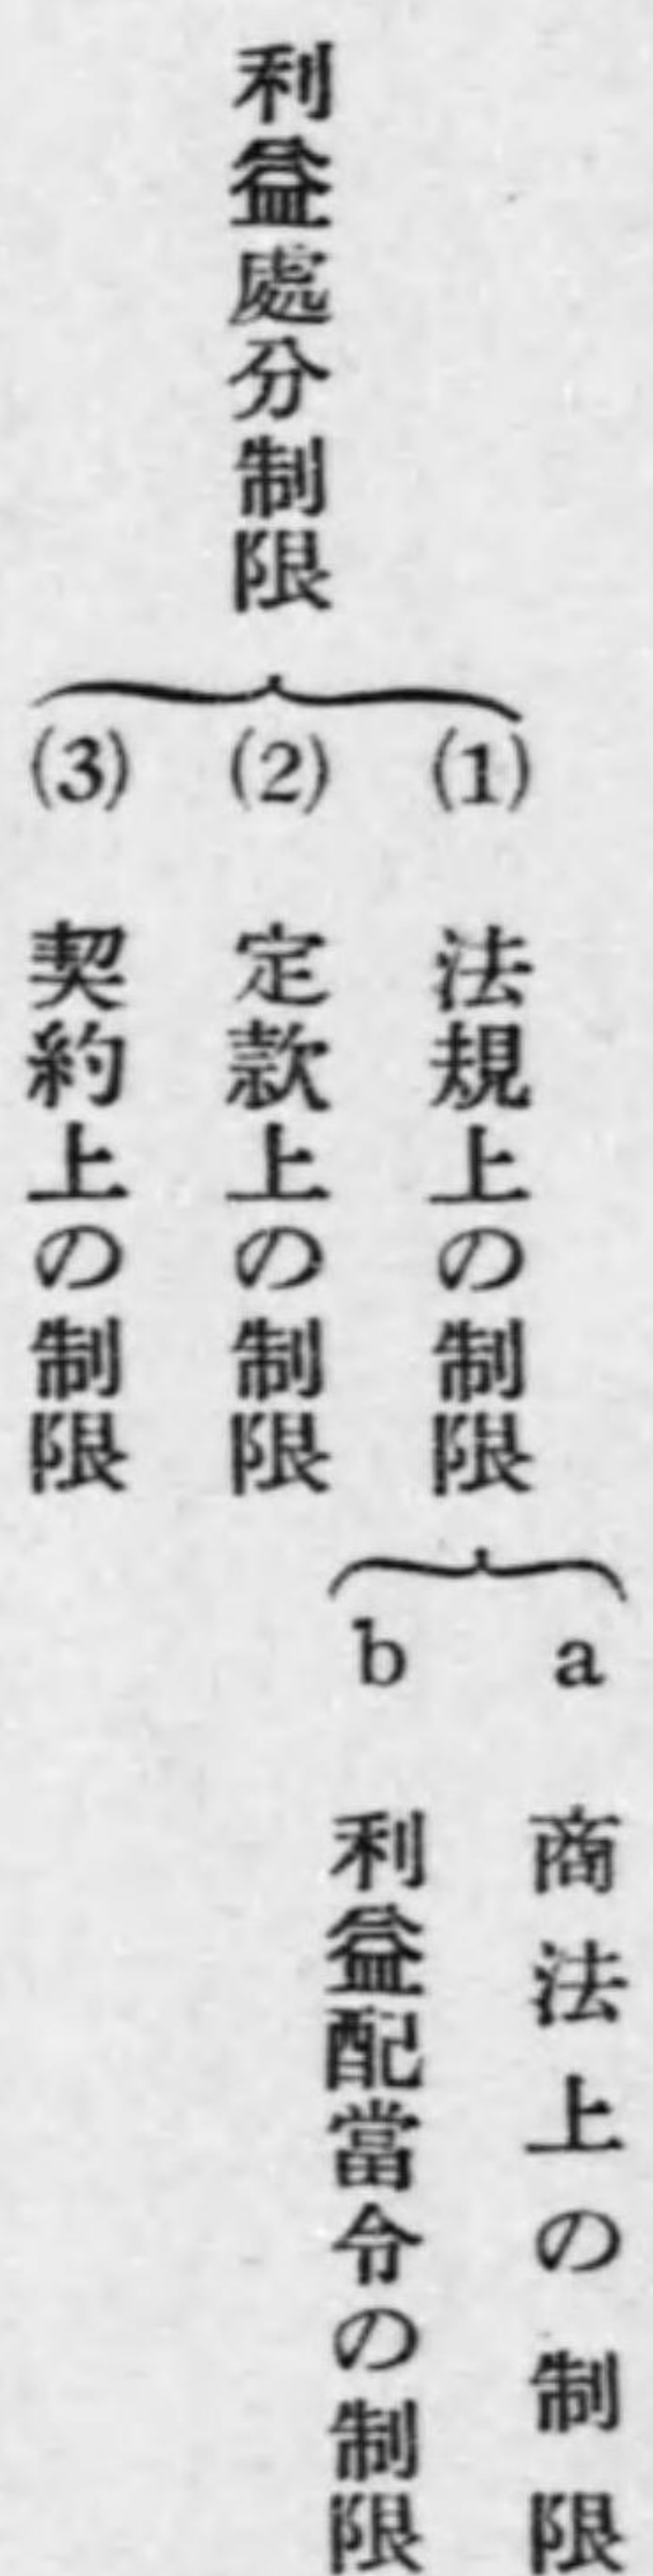 利益處分制限
(1) 法規上の制限
a 商法上の制限
b 利益配當令の制限
(2) 定款上の制限
(3) 契約上の制限